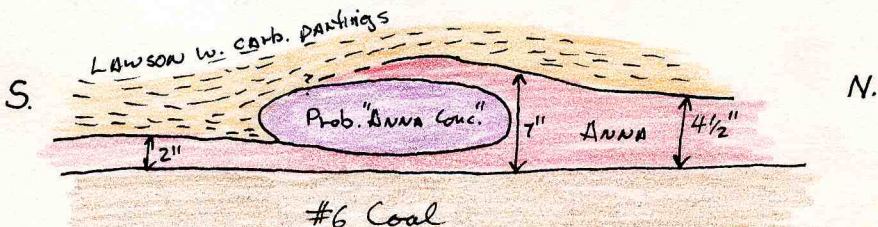 LAWSON W. CARB. PARTINGS
S.
N.
?
Prob. "ANNA Conc."
7"
ANNA
4 1/2"
2"
#6 Coal